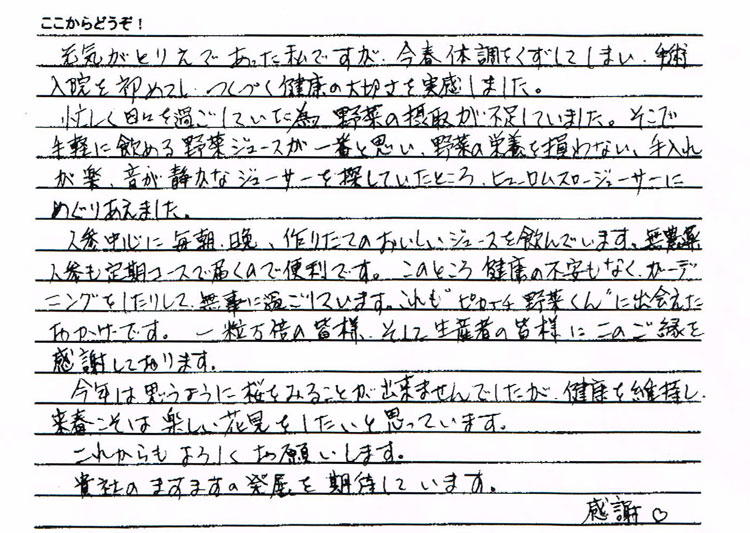 ここからどうぞ！
元気がとりえであった私ですが、今春体調をくずしてしまい、手術
入院を初めてし、つくづく健康の大切さを実感しました。
忙しく日々を過ごしていた為、野菜の摂取が不足していました。そこで
手軽に飲める野菜ジュースが一番と思い、野菜の栄養を損わない、手入れ
が楽、音が静かなジューサーを探していたところ、ヒューロムスロージューサーに
めぐりあえました。
人参中心に毎朝、晩、作りたてのおいしいジュースを飲んでいます。無農薬
人参も定期コースで届くので便利です。このところ健康の不安もなく、ガーデ
ニングをしたりして、無事に過ごしています。これも“ピカイチ野菜くん”に出会えた
おかげです。一粒万倍の皆様、そして生産者の皆様にこのご縁を
感謝しております。
今年は思うように桜をみることが出来ませんでしたが、健康を維持し、
来春こそは楽しい花見をしたいと思っています。
これからもよろしくお願いします。
貴社のますますの発展を期待しています。
感謝♡